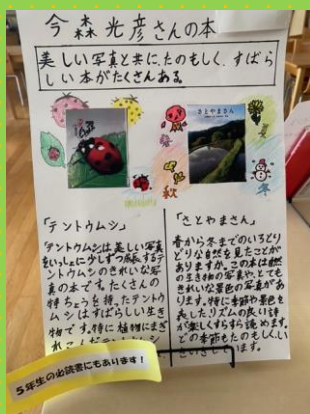 今森光彦さんの本
美しい写真と共に、たのもしく、すばら
しい本がたくさんある。
さとやまさん
春
夏
秋
冬
「テントウムシ」
テントウムシは美しい写真
をいっしょに少しずつ成長するテ
ントウムシのきれいな写
真の本です。たくさんの
特ちょうを持ったテントウ
ムシはすばらしい生き
物です。特に植物にまぎ
「さとやまさん」
春から冬までのいろどり
どりな自然を見たことが
ありますか。この本は自然
の生き物の写真や、とても
きれいな景色の写真があ
ります。特に季節や景色を
表したリズムの良い詩
が楽しくすらすら読めます。
どの季節もたのもしい
5年生の必読書にもあります!